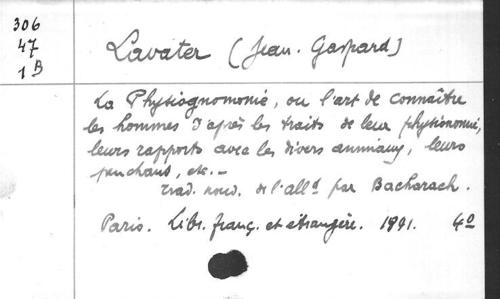 306
47
1B
Lavater (Jean. Gaspard)
La Physiognomonie, ou l'art de connaître
les hommes d'après les traits de leur physionomie,
leurs rapports avec les divers animaux, leurs
penchans, etc. –
trad. nouv. de l'alld par Bacharach.
Paris. Libr. franç. et étrangère. 1841. 4o